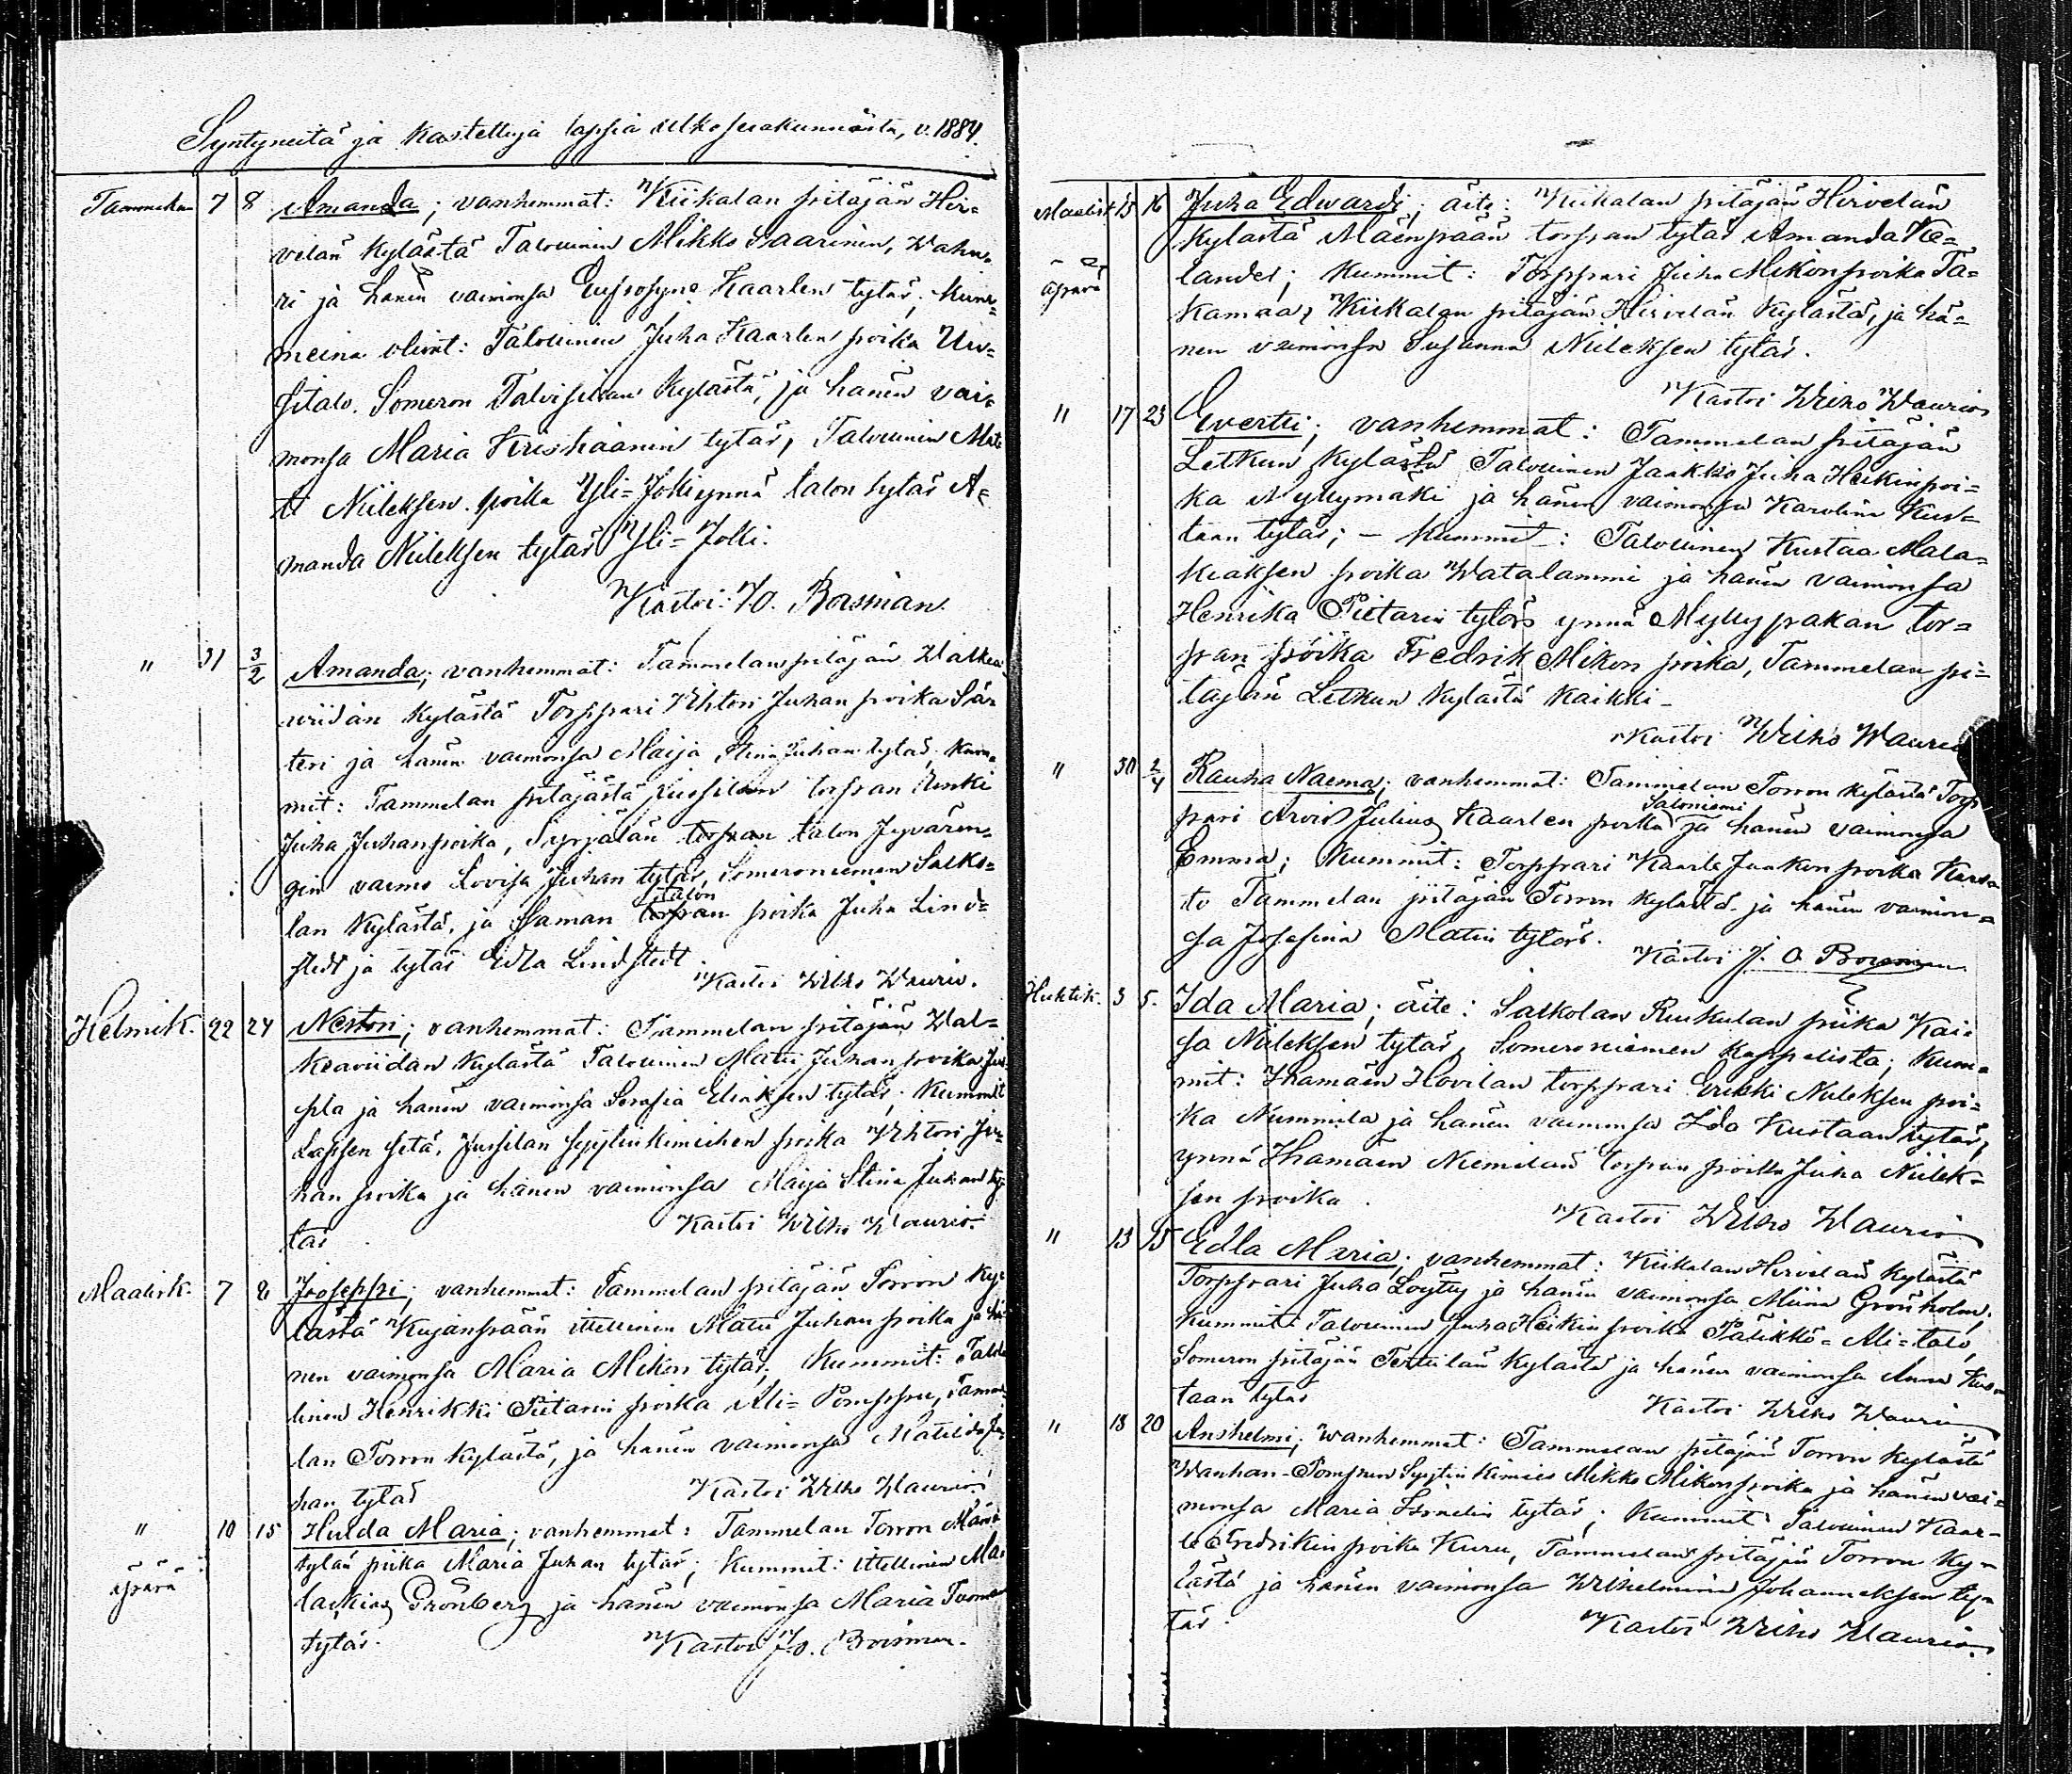 Syntyneitä ja kastettuja lapsia ulkoseurakunnista, v. 1884.
Tammik. 7 8 Amanda; vanhemmat: Kiikalan pitäjän Hir=
velän kylästä Talollinen Mikko Saarinen,
ri ja hänen vaimonsa Eufrosyne Kaarlen tytär; Kum=
meina olivat: Talollinen Juha Kaarlen poika Uu=
sitalo, Someron Talvisillan kylästä, ja hänen vai=
monsa Maria Kristiaanin tytär, Talollinen Mat=
ti Niileksen poika Yli=Joki ynnä talon tytär A=
manda Niileksen tytär Yli=Jokki.
Kastoi: J. O. Bosman.
" 31 3/2 Amanda; vanhemmat: Tammelan pitäjän Walkea=
wiidan kylästä Torppari Wihtori Juhan poika Sän
teri ja hänen vaimonsa Maija Stina Juhan tytär; Kum=
mit: Tammelan pitäjästä Jussilan torpan Renki
Juha Juhanpoika, Syrjälän torpan talon
gin vaimo Lovisa Juhan tytär, Someroniemen Salko=
lan kylästä, ja saman torpan talon poika Juha Lind=
stedt ja tytär Edla Lindstedt.
Kastoi Wilho Waurio.
Helmik. 22 24 Nestori; vanhemmat: Tammelan pitäjän Wal=
keaviidan kylästä Talollinen Matti Juhan poika Jus
sila ja hänen vaimonsa Serafia Eliaksen tytär; Kummit
Lapsen setä, Jussilan syytinkimiehen poika Wihtori Ju=
han poika ja hänen vaimonsa Maija Stina Juhan ty=
tär
Kastoi Wilho Waurio.
Maalisk. 7 8 Joseppi; vanhemmat: Tammelan pitäjän Torron ky=
lästä Kujanpään itsellinen Matti Juhan poika ja hä
nen vaimonsa Maria Mikon tytär; Kummit: Talol
linen Henrikki Pietarin poika Ali=Pomppu, Tamme
lan Torron kylästä, ja hänen vaimonsa Matilda Ju
han tytär
Kastoi Wilho Waurio.
" 10 15 Hulda Maria; vanhemmat: Tammelan Torron
kylän piika Maria Juhan tytär; Kummit: itsellinen Ma=
äpärä
lakias Grönberg ja hänen vaimonsa Maria Tuoman
tytär.
Kastoi J. O. Bosman.
Maalisk 15 16 Juha Edwardi; äite: Kiikalan pitäjän Hirvelän
kylästä Mäenpään torpan tytär Amanda Ke=
äpärä
lander; Kummit: Torppari Juha Mikonpoika Ta=
kamaa, Kiikalan pitäjän Hirvelän kylästä, ja hä=
nen vaimonsa Susanna Niileksen tytär.
Kastoi Wilho Waurio
" 17 23 Evertti; vanhemmat: Tammelan pitäjän
Letkun kylästä Talollinen Jaakko Juha Heikinpoi=
ka Myllymäki ja hänen vaimonsa Karolina Kus=
taan tytär; — Kummit: Talollinen Kustaa Mala=
kiaksen poika Watalammi ja hänen vaimonsa
Henrika Pietarin tytär ynnä Myllypakan tor=
pan poika Fredrik Mikon poika, Tammelan pi=
täjän Letkun kylästä kaikki —
Kastoi Wilho Waurio
" 30 2/4 Rauha Naema; vanhemmat: Tammelan Torron kylästä Torp
Saloniemi
pari Arvid Julius Kaarlen poika ja hänen vaimonsa
Emma; Kummit: Torppari Kaarle Jaakon poika
to Tammelan pitäjän Torron kylästä ja hänen vaimon=
sa Josefina Matin tytär.
Kastoi J. O. Bosman
Huhtik. 3 5. Ida Maria; äite: Salkolan Ruskulan piika Kai=
sa Niileksen tytär, Someroniemen Kappelista; Kum=
mit: Ihamäen Hovilan torppari Erikki Niileksen poi=
ka Nummila ja hänen vaimonsa Ida Kustaan tytär,
ynnä Ihamäen Niemelän torpan poika Juha Niilek=
sen poika.
Kastoi Wilho Waurio
" 13 15 Edla Maria; vanhemmat: Kiikalan Hirvelän kylästä
Torppari Juha Löytty ja hänen vaimonsa Miina Grönholm;
Kummit: Talollinen Juha Heikin poika Pätikkö=Ali=talo,
Someron pitäjän Terttilän kylästä ja hänen vaimonsa Anna Kus=
taan tytär
Kastoi Wilho Waurio
" 18 20 Anshelmi; wanhemmat: Tammelan pitäjän Torron kylästä
Wanhan-Pompun Syytinkimies Mikko Mikonpoika ja hänen vai=
monsa Maria tytär; Kummit: Talollinen Kaar=
le Fredrikin poika Kuru, Tammelan pitäjän Torron ky=
lästä ja hänen vaimonsa Wilhelmiina Johanneksen ty=
tär.
Kastoi Wilho Waurio.